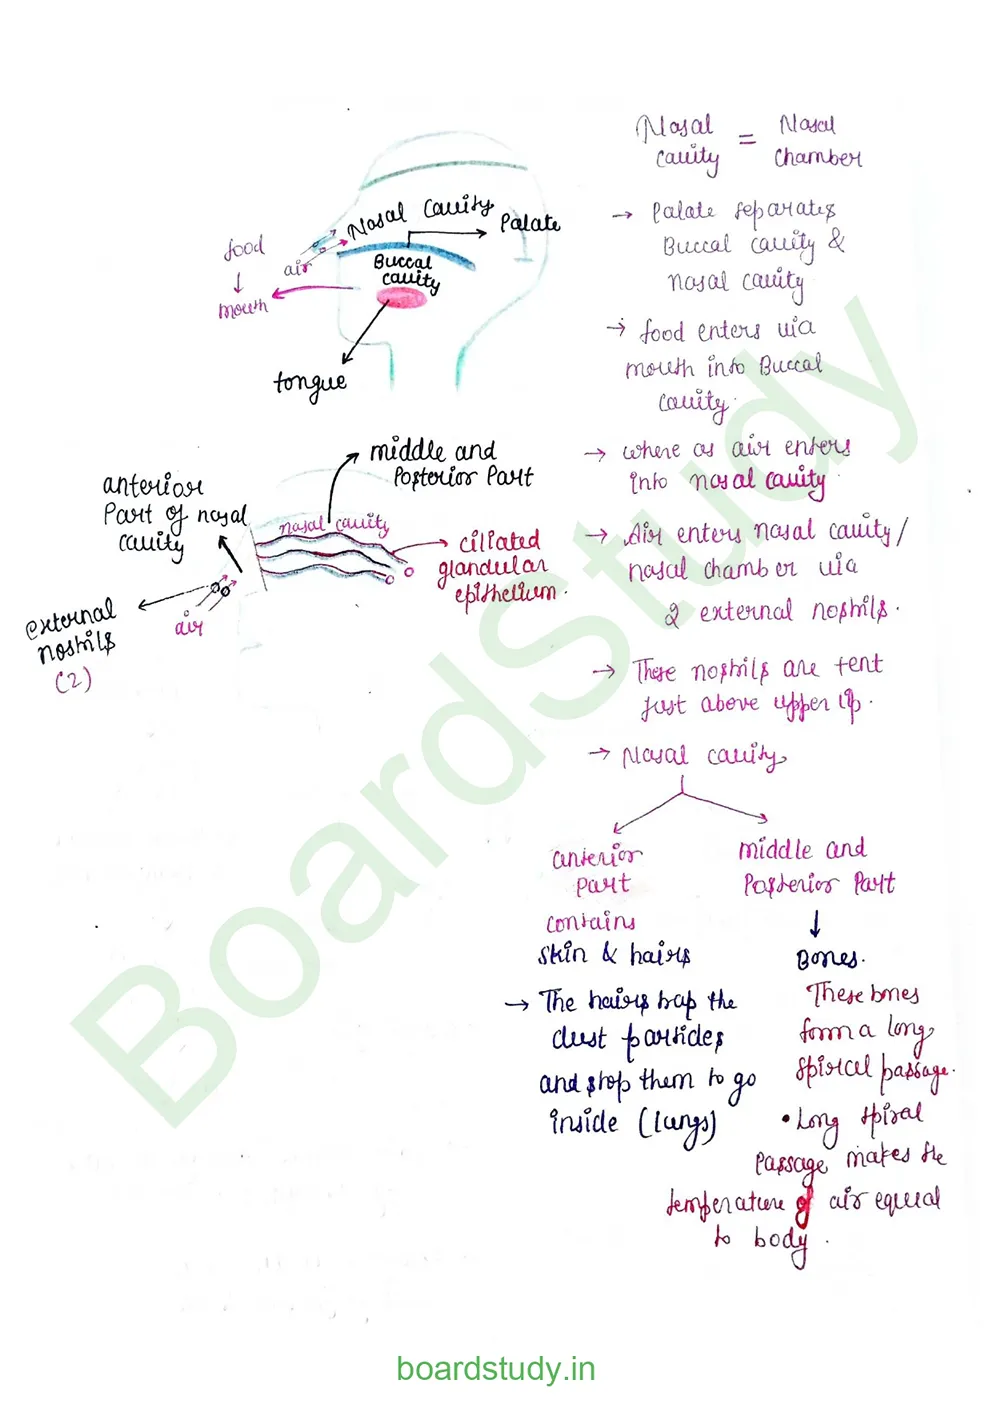 Nasal cavity = Nasal chamber
→ Palate separates
Buccal cavity &
nasal cavity
→ food enters via
mouth into Buccal
cavity.
→ where as air enters
into nasal cavity
→ Air enters nasal cavity /
nasal chamber via
2 external nostrils.
→ These nostrils are
just above upper lip.
→ Nasal cavity
anterior
part
contains
skin & hairs
→ The hairs trap the
dust particles
and stop them to go
inside (lungs)
middle and
Posterior Part
Bones.
These bones
form a long
spiral passage.
• Long spiral
passage makes the
temperature of air equal
to body.
Nasal cavity
Palate
food
mouth
air
Buccal
cavity
tongue
middle and
Posterior Part
anterior
Part of nasal
cavity
nasal cavity
ciliated
glandular
epithelium.
external
nostrils
(2)
air
BoardStudy
boardstudy.in